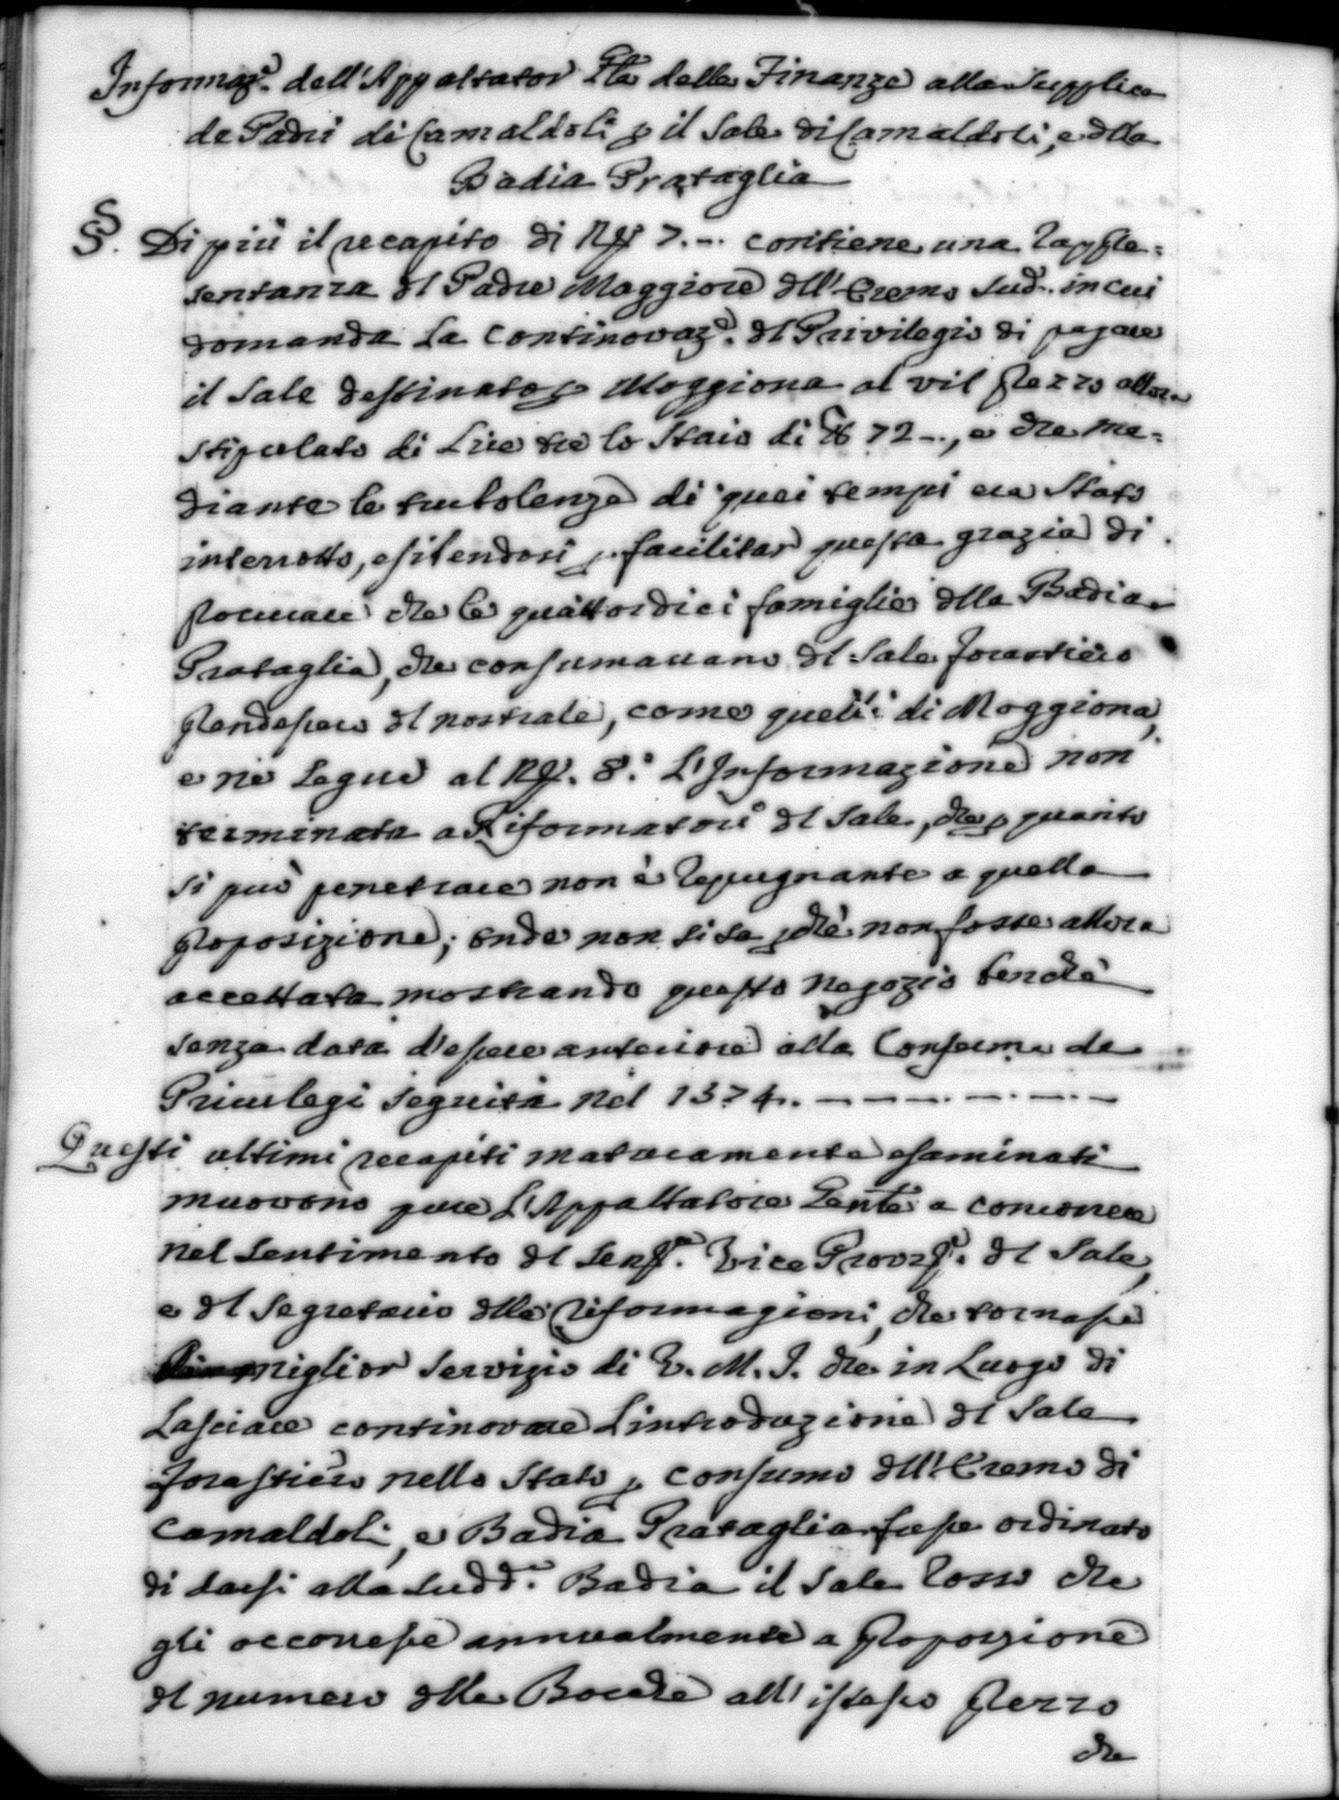 Informaz.e dell'Appaltator Gle delle Finanze alla Supplica
de Padri di Camaldoli p il Sale di Camaldoli, e dlla
Badia Prataglia
§. Di più il recapito di N° 7.-- contiene una rappre=
sentanza dl Padre Maggiore dll'Eremo Sud.o in cui
domanda la Continovaz.e dl Privilegio di pagare
il Sale destinato p Moggiona al vil prezzo allora
stipulato di Lire tre lo Staio di lb 72--, e che me=
diante le turbolenze di quei tempi era Stato
interrotto, esibendosi p facilitar questa grazia di
procurare che le quattordici famiglie dlla Badia
Prataglia, che consumavano dl Sale forastiero
prendessero dl nostrale, come quelli di Moggiona,
e ne segue al N°. 8.° L'Informazione non
terminata a Riformatori dl Sale, che p quanto
si può penetrare non è repugnante a quella
proposizione; onde non si sa pchè non fosse allora
accettata mostrando questo negozio benchè
senza data d'essere anteriore alla Conferma de
Privilegi seguita nel 1374. — — — — —
Questi ultimi recapiti maturamente esaminati
muovono pure L'Appaltatore Gente a concorrere
nel sentimento dl Ser.e Vice Provv.e dl Sale,
e dl Segretario dlle Riformagioni, che tornasse
miglior servizio di V. M. I. che in Luogo di
Lasciare continovare L'introduzione dl Sale
forastiero nello Stato p consumo dll'Eremo di
Camaldoli, e Badia Prataglia fosse ordinato
di darsi alla Sudd.a Badia il Sale rosso che
gli occorresse annualmente a proporzione
dl numero dlle Bocche all'istesso prezzo
che